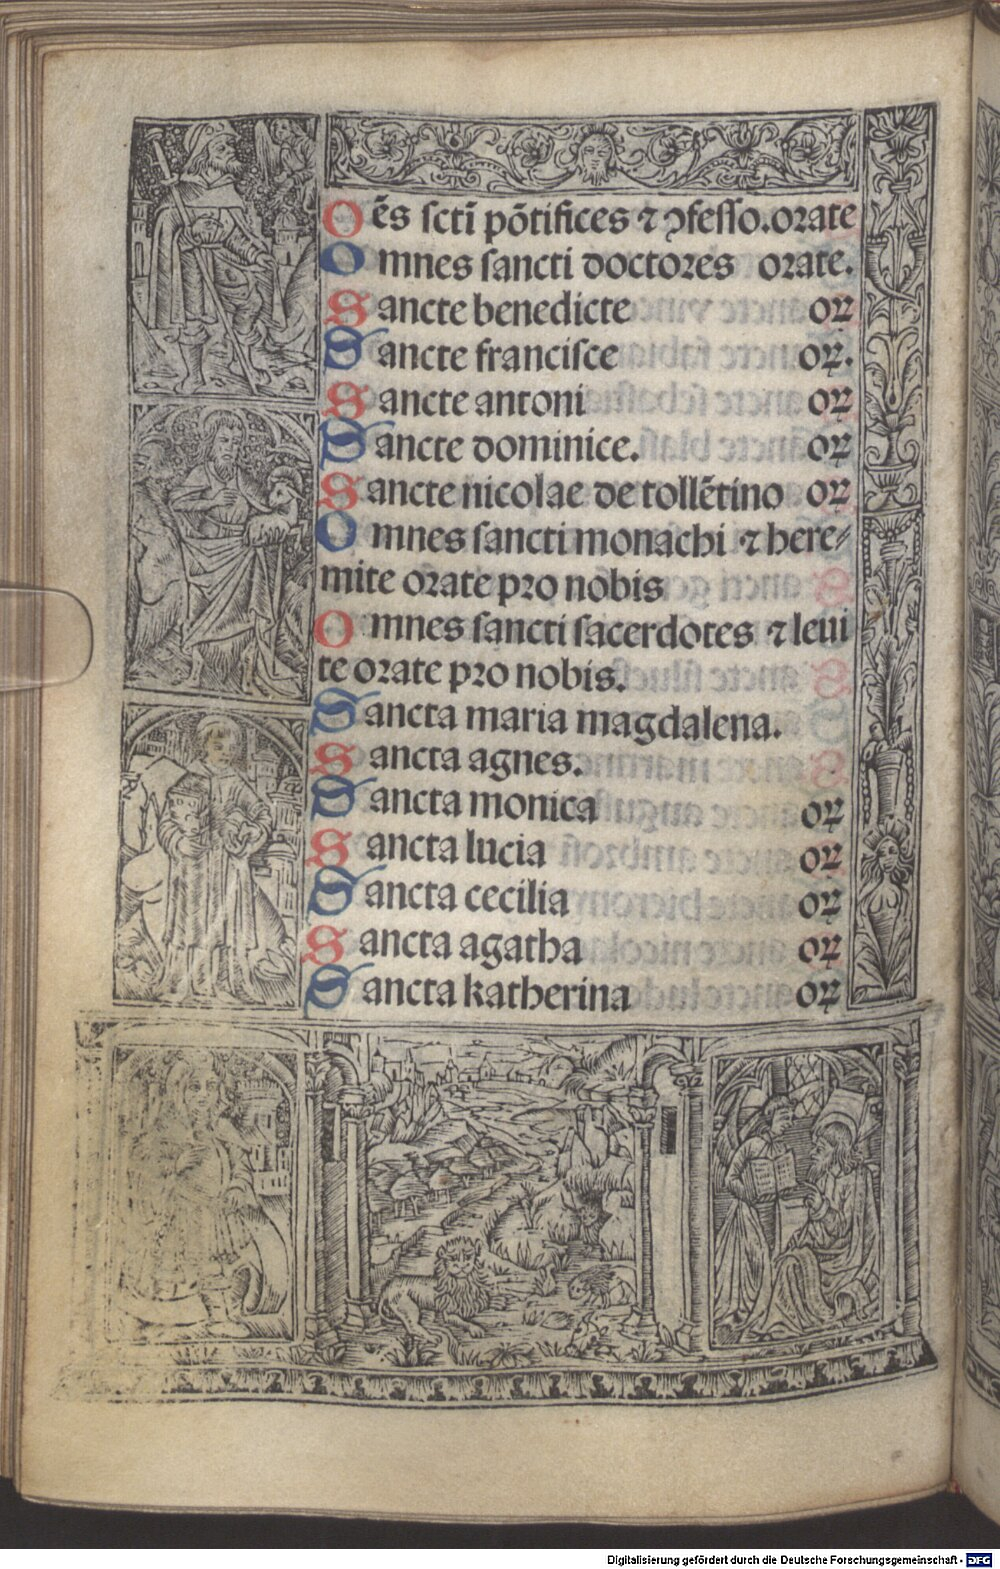 Oēs sctī põtifices ⁊ ↄfesso.orate
Omnes sancti doctores orate.
Sancte benedicte oꝝ
Sancte francisce oꝝ.
Sancte antoni oꝝ
Sancte dominice. oꝝ
Sancte nicolae de tollētino oꝝ
Omnes sancti monachi ⁊ here⸗
mite orate pro nobis
Omnes sancti sacerdotes ⁊ leui
te orate pro nobis.
Sancta maria magdalena.
Sancta agnes.
Sancta monica oꝝ
Sancta lucia oꝝ
Sancta cecilia oꝝ
Sancta agatha oꝝ
Sancta katherina oꝝ
Digitalisierung gefördert durch die Deutsche Forschungsgemeinschaft - DFG